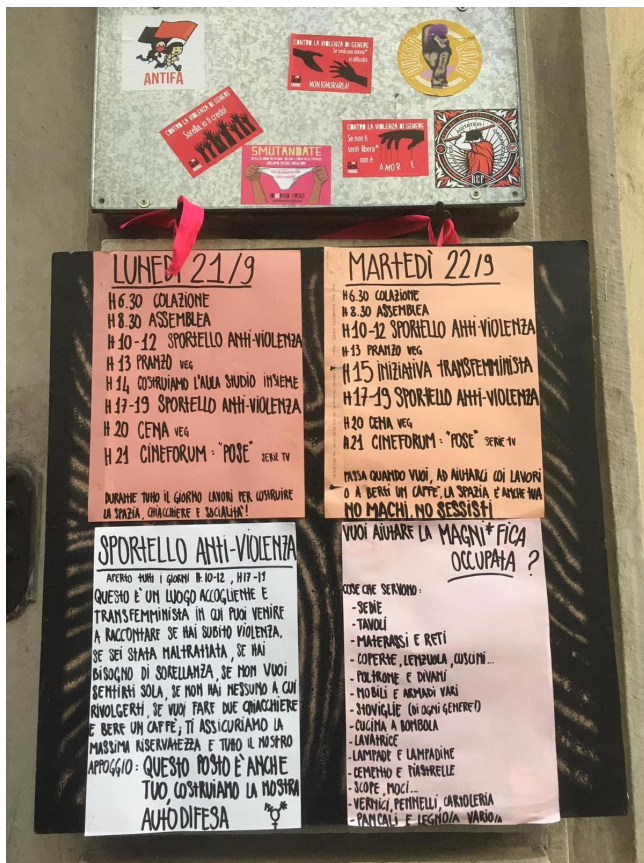 ANTIFA
CONTRO LA VIOLENZA DI GENERE
Se vedi una donna*
in difficoltà
NON IGNORARLA!
CONTRO LA VIOLENZA DI GENERE
Sorella, io ti credo!
SMUTANDATE
CONTRO LA VIOLENZA DI GENERE
Se non ti
senti libera*
non è
AMORE
LUNEDÌ 21/9
H 6.30 COLAZIONE
H 8.30 ASSEMBLEA
H 10-12 SPORTELLO ANTI-VIOLENZA
H 13 PRANZO VEG
H 14 COSTRUIAMO L'AULA STUDIO INSIEME
H 17-19 SPORTELLO ANTI-VIOLENZA
H 20 CENA VEG
H 21 CINEFORUM: "POSE" SERIE TV
DURANTE TUTTO IL GIORNO LAVORI PER COSTRUIRE
LA SPAZIA, CHIACCHIERE E SOCIALITÀ!
MARTEDÌ 22/9
H 6.30 COLAZIONE
H 8.30 ASSEMBLEA
H 10-12 SPORTELLO ANTI-VIOLENZA
H 13 PRANZO VEG
H 15 INIZIATIVA TRANSFEMMINISTA
H 17-19 SPORTELLO ANTI-VIOLENZA
H 20 CENA VEG
H 21 CINEFORUM: "POSE" SERIE TV
PASSA QUANDO VUOI, AD AIUTARCI COI LAVORI
O A BERTI UN CAFFÈ, LA SPAZIA È ANCHE TUA
NO MACHI, NO SESSISTI
SPORTELLO ANTI-VIOLENZA
APERTO TUTTI I GIORNI H.10-12, H17-19
QUESTO È UN LUOGO ACCOGLIENTE E
TRANSFEMMINISTA IN CUI PUOI VENIRE
A RACCONTARE SE HAI SUBITO VIOLENZA,
SE SEI STATA MALTRATTATA, SE HAI
BISOGNO DI SORELLANZA, SE NON VUOI
SENTIRTI SOLA, SE NON HAI NESSUNO A CUI
RIVOLGERTI, SE VUOI FARE DUE CHIACCHIERE
E BERE UN CAFFÈ; TI ASSICURIAMO LA
MASSIMA RISERVATEZZA E TUTTO IL NOSTRO
APPOGGIO: QUESTO POSTO È ANCHE
TUO, COSTRUIAMO LA NOSTRA
AUTODIFESA
VUOI AIUTARE LA MAGNI*FICA
OCCUPATA?
COSE CHE SERVONO:
- SEDIE
- TAVOLI
- MATERASSI E RETI
- COPERTE, LENZUOLA, CUSCINI...
- POLTRONE E DIVANI
- MOBILI E ARMADI VARI
- STOVIGLIE (DI OGNI GENERE!)
- CUCINA A BOMBOLA
- LAVATRICE
- LAMPADE E LAMPADINE
- CEMENTO E PIASTRELLE
- SCOPE, MOCI...
- VERNICI, PENNELLI, CARTOLERIA
- PANCALI E LEGNO/A VARIO/A